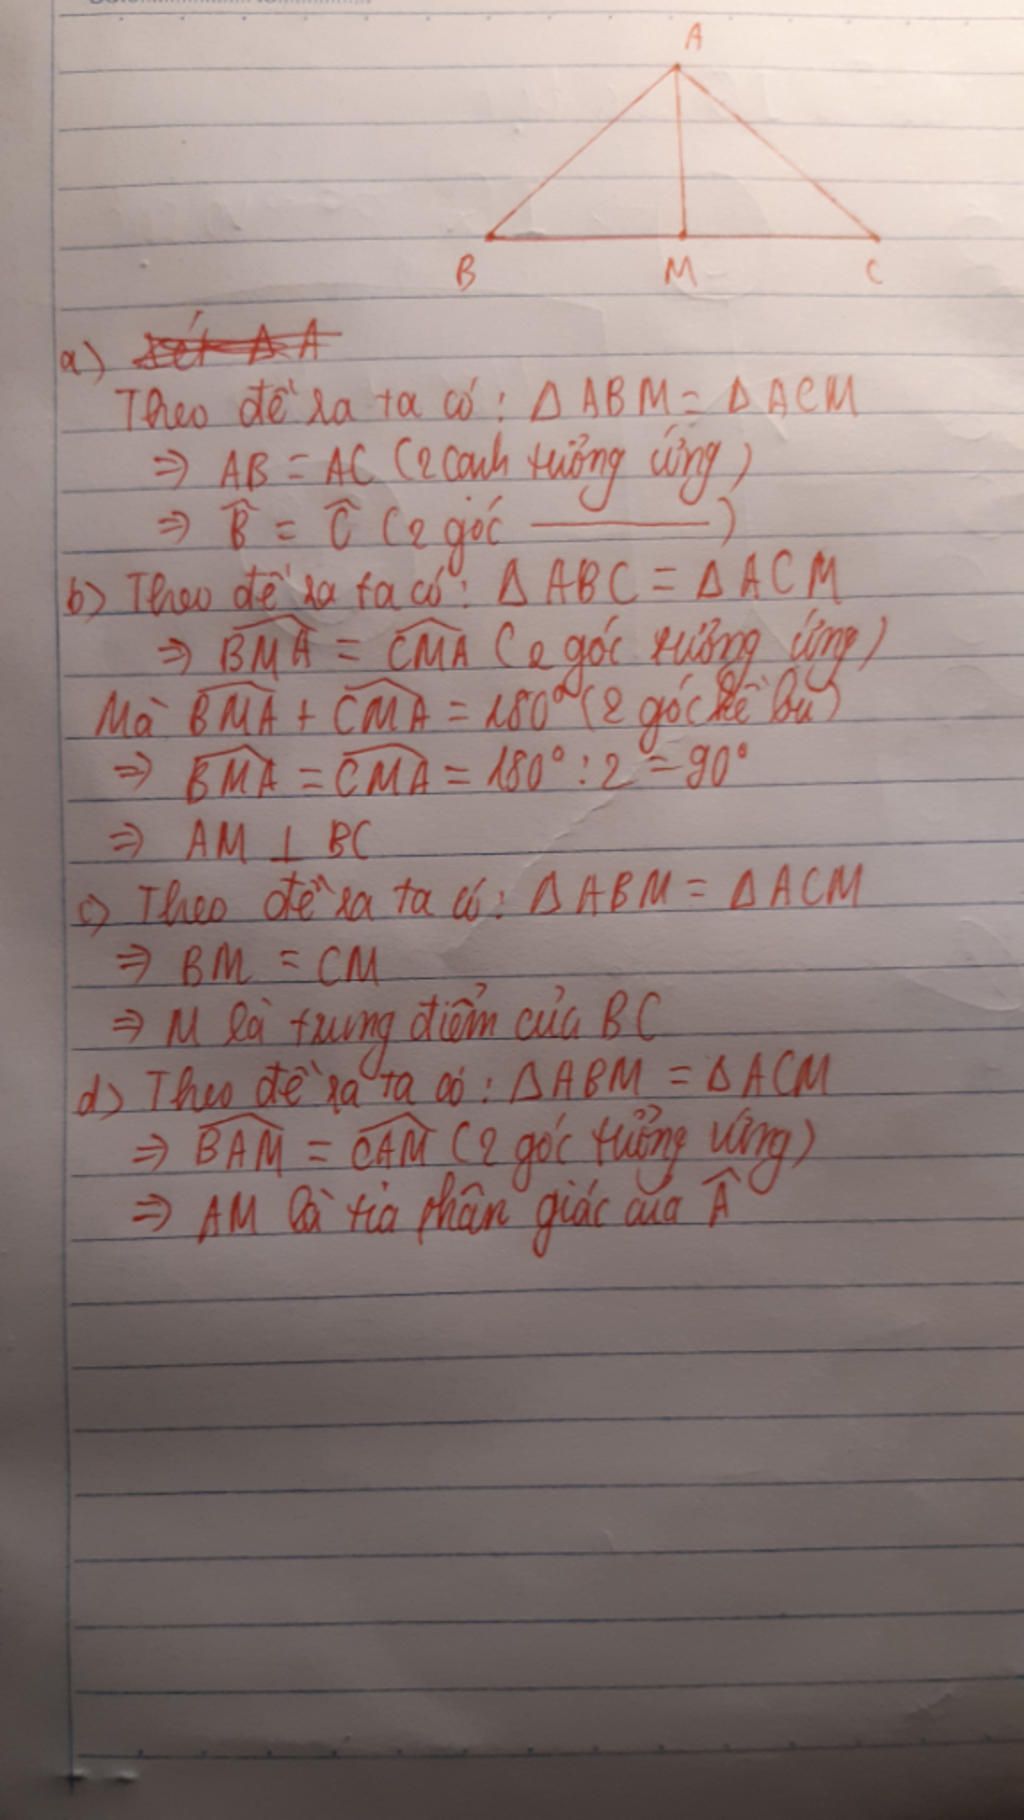 A
B M C
a)
Theo đề ra ta có: Δ ABM = Δ ACM
⇒ AB = AC (2 cạnh tương ứng)
⇒ B̂ = Ĉ (2 góc ———)
b) Theo đề ra ta có: Δ ABC = Δ ACM
⇒ \widehat{BMA} = \widehat{CMA} (2 góc tương ứng)
Mà \widehat{BMA} + \widehat{CMA} = 180° (2 góc kề bù)
⇒ \widehat{BMA} = \widehat{CMA} = 180° : 2 = 90°
⇒ AM ⊥ BC
c) Theo đề ra ta có: Δ ABM = Δ ACM
⇒ BM = CM
⇒ M là trung điểm của BC
d) Theo đề ra ta có: Δ ABM = Δ ACM
⇒ \widehat{BAM} = \widehat{CAM} (2 góc tương ứng)
⇒ AM là tia phân giác của Â